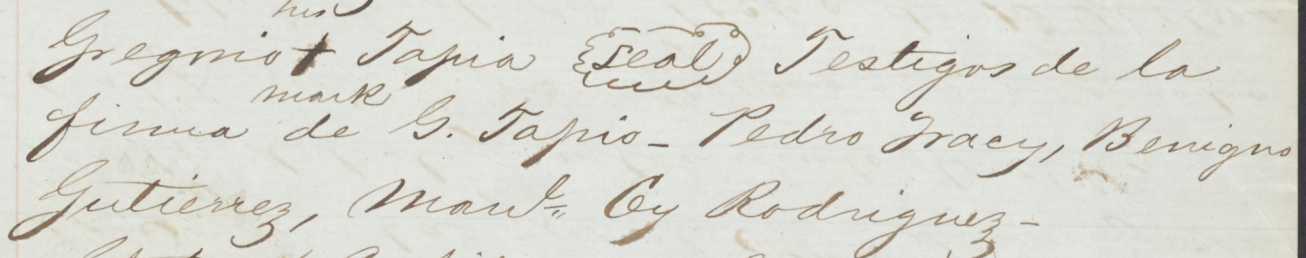 his
Gregorio + Tapia seal Testigos de la
mark
firma de G. Tapio - Pedro Tracy, Benigno
Gutierrez, Manl. Cy Rodriguez -